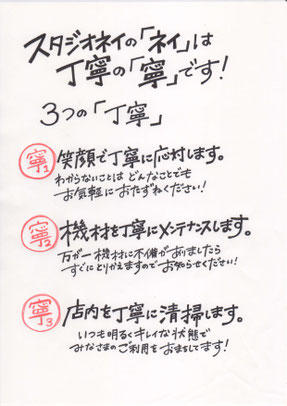 スタジオネイの「ネイ」は
丁寧の「寧」です！
3つの「丁寧」
寧1 笑顔で丁寧に応対します。
わからないことは どんなことでも
お気軽におたずねください！
寧2 機材を丁寧にメンテナンスします。
万が一 機材に不備がありましたら
すぐにとりかえますのでお知らせください！
寧3 店内を丁寧に清掃します。
いつも明るくキレイな状態で
みなさまのご利用をおまちしてます！